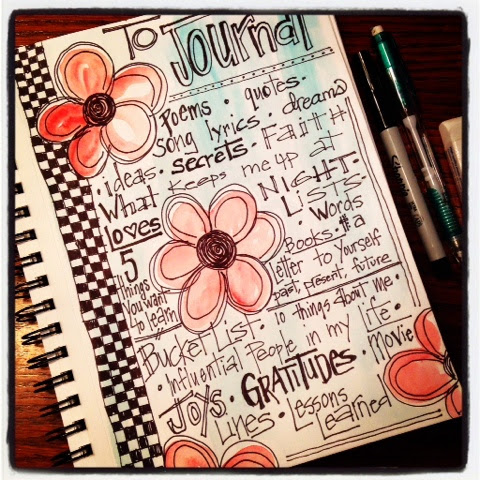 To Journal
poems · quotes ·
song lyrics · dreams
· Ideas · secrets · FAITH!
What keeps me up at
NIGHT ·
Loves
LISTS ·
Words
5
Books · #a
things
Letter to Yourself
You want
past, present, future
to learn
Bucket List · 10 things about me ·
· Influential People in my Life ·
JOYS · GRATITUDES · Movie
Lines · Lessons
Learned
Sharpie